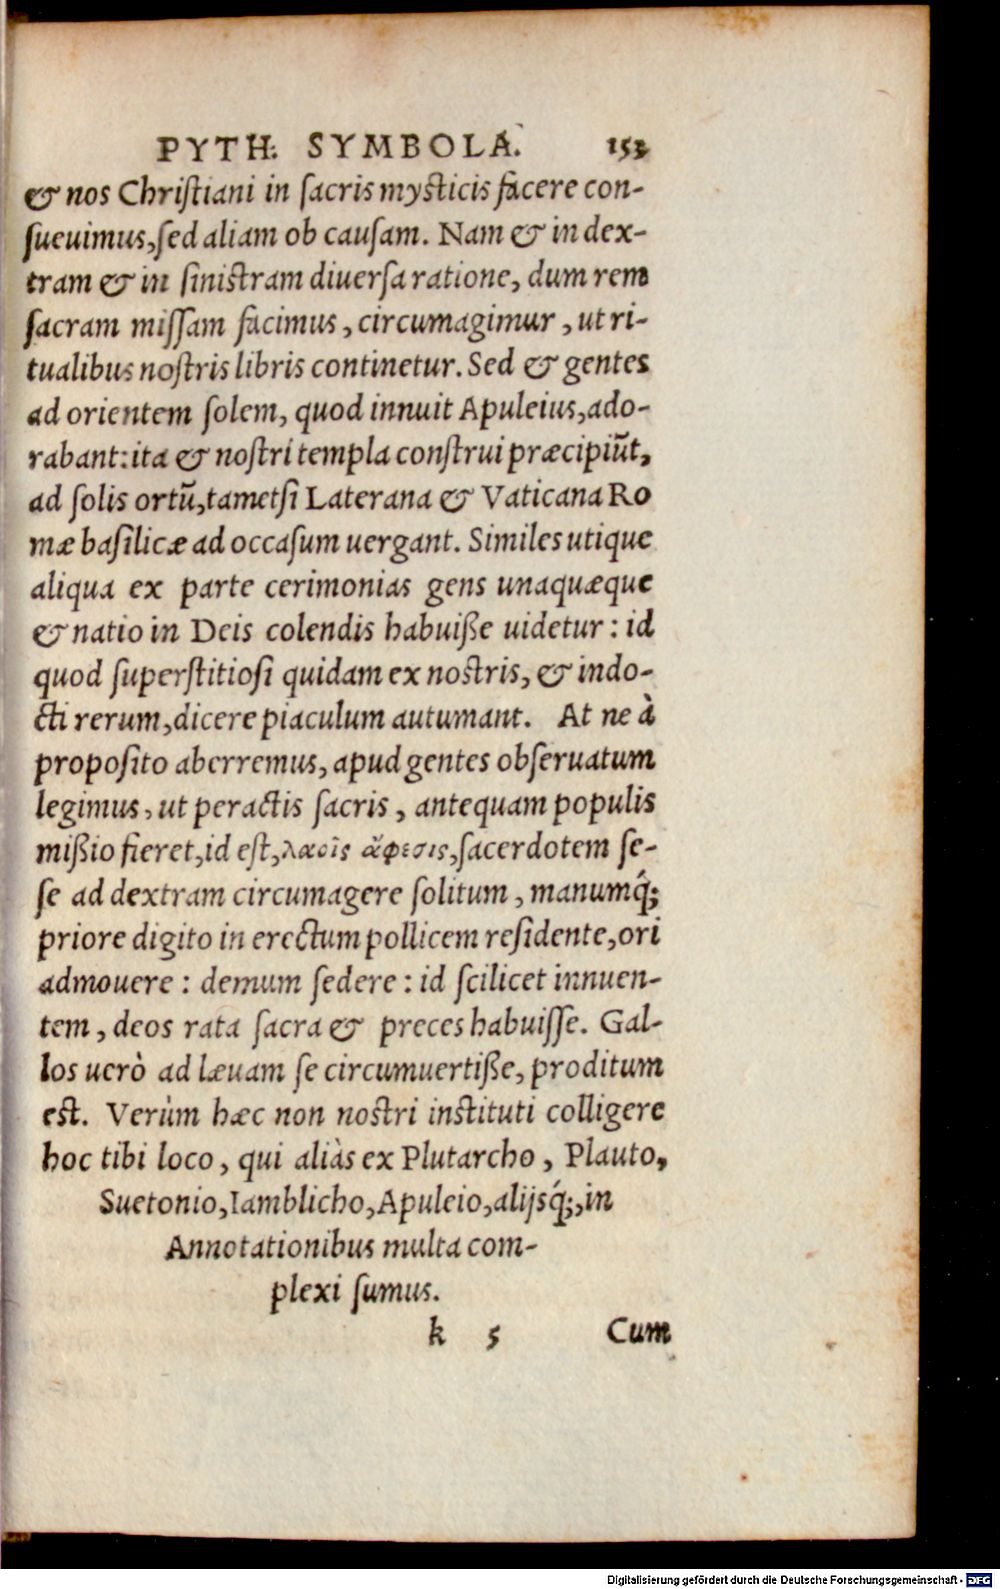 PYTH. SYMBOLA. 153
& nos Chriſtiani in ſacris myſticis facere con-
ſueuimus,ſed aliam ob cauſam. Nam & in dex-
tram & in ſiniſtram diuerſa ratione, dum rem
ſacram miſſam facimus, circumagimur, ut ri-
tualibus noſtris libris continetur. Sed & gentes
ad orientem ſolem, quod innuit Apuleius, ado-
rabant: ita & noſtri templa conſtrui præcipiũt,
ad ſolis ortũ, tametſi Laterana & Vaticana Ro
mæ baſilicæ ad occaſum uergant. Similes utique
aliqua ex parte cerimonias gens unaquæque
& natio in Deis colendis habuiße uidetur: id
quod ſuperſtitioſi quidam ex noſtris, & indo-
cti rerum, dicere piaculum autumant. At ne à
propoſito aberremus, apud gentes obſeruatum
legimus, ut peractis ſacris, antequam populis
mißio fieret, id eſt, λαοῖς ἄφεσις, ſacerdotem ſe-
ſe ad dextram circumagere ſolitum, manumq́;
priore digito in erectum pollicem reſidente, ori
admouere: demum ſedere: id ſcilicet innuen-
tem, deos rata ſacra & preces habuiſſe. Gal-
los uerò ad læuam ſe circumuertiße, proditum
eſt. Verùm hæc non noſtri inſtituti colligere
hoc tibi loco, qui aliàs ex Plutarcho, Plauto,
Suetonio, Iamblicho, Apuleio, alijsq́;, in
Annotationibus multa com-
plexi ſumus.
k 5 Cum
Digitalisierung gefördert durch die Deutsche Forschungsgemeinschaft - DFG